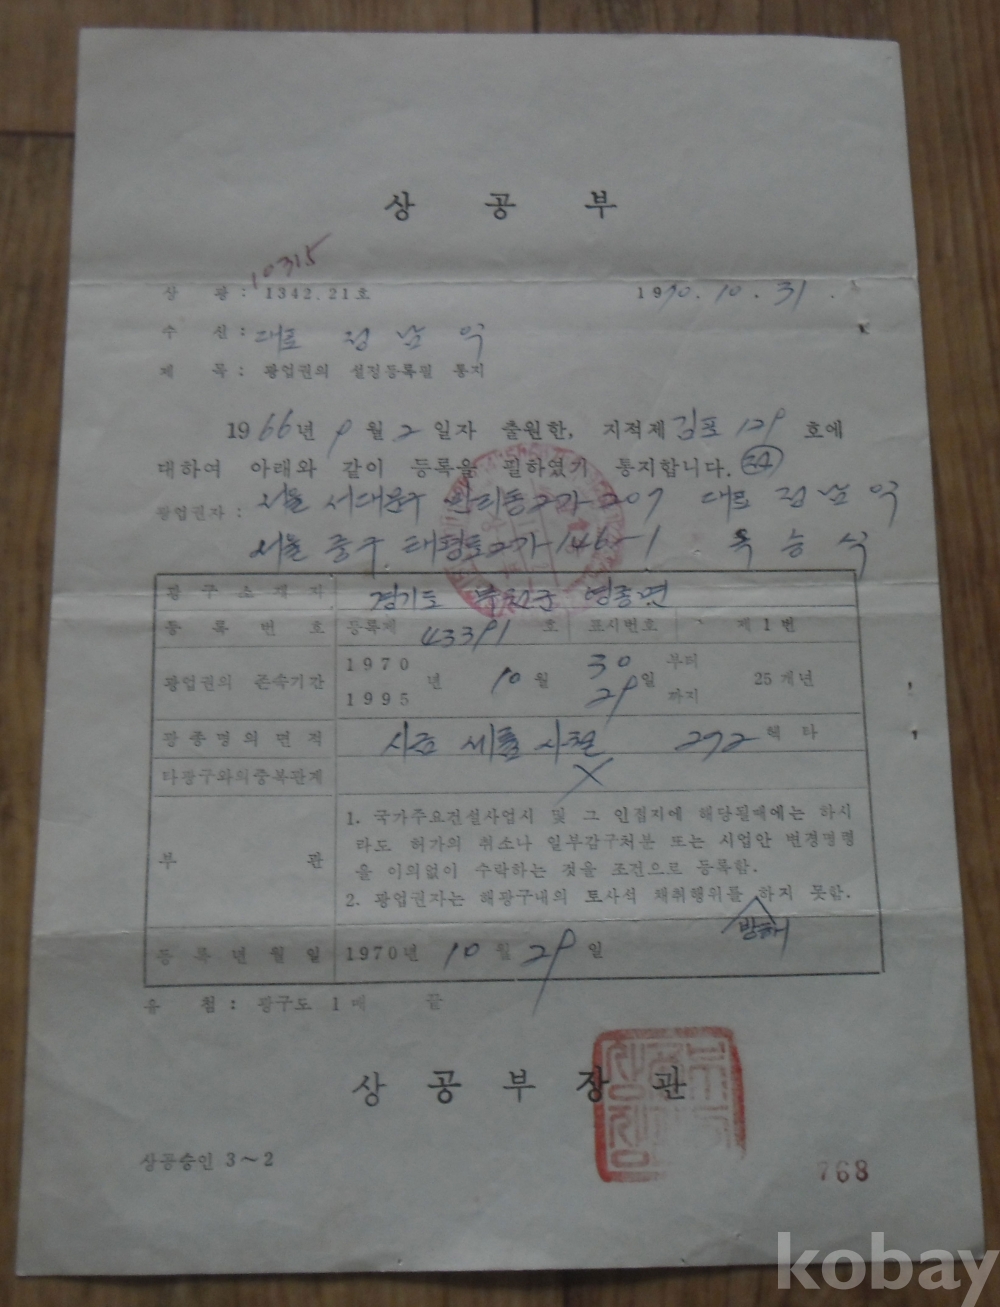 상 공 부
10315
상 광 : 1342.21호 1970.10.31.
수 신 : 대표 정남익
제 목 : 광업권의 설정등록필 통지
1966년 9월 2일자 출원한, 지적제 김포 129 호에
대하여 아래와 같이 등록을 필하였기 통지합니다.
광업권자 : 서울 서대문구 만리동2가 207 대표 정남익
서울 중구 태평로2가 146-1 옥승식
광구소재지 경기도 부천군 영종면
등록번호 등록제 43391 호 표시번호 제1번
광업권의 존속기간 1970 년 10 월 30 일 부터 25개년
1995 29 까지
광종명의면적 사금 세륨 사철 272 헥타
타광구와의중복관계 X
부 관 1. 국가주요건설사업시 및 그 인접지에 해당될때에는 하시
라도 허가의 취소나 일부감구처분 또는 시업안 변경명령
을 이의없이 수락하는 것을 조건으로 등록함.
2. 광업권자는 해광구내의 토사석 채취행위를 방해하지 못함.
등록년월일 1970년 10월 29일
유 첨 : 광구도 1매 끝
상 공 부 장 관
상공승인 3~2
768
kobay